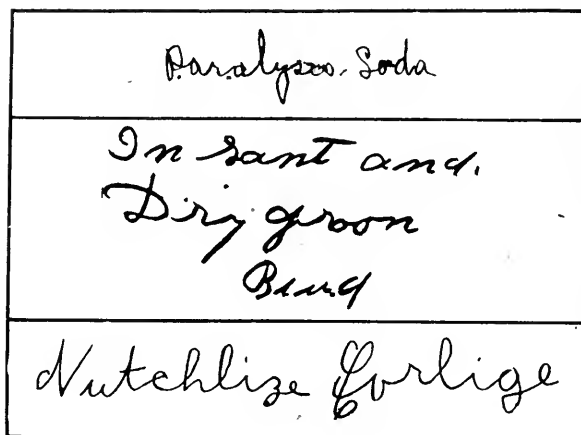 Paralyszo. Soda
In sant and.
Dry groon
Bind
Nutchlize Corlige